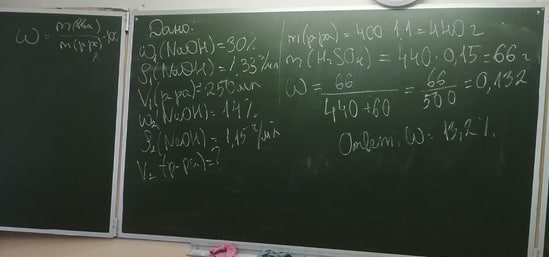 ω = m(в-ва) / m(р-ра) · 100
Дано:
ω₁(NaOH) = 30%
ρ₁(NaOH) = 1,33 г/мл
V₁(р-ра) = 250 мл
ω₂(NaOH) = 14%
ρ₂(NaOH) = 1,15 г/мл
V₂(р-ра) = ?
m(р-ра) = 400 · 1,1 = 440 г
m(H₂SO₄) = 440 · 0,15 = 66 г
ω = 66 / 440 + 60 = 66 / 500 = 0,132
Ответ: ω = 13,2%.